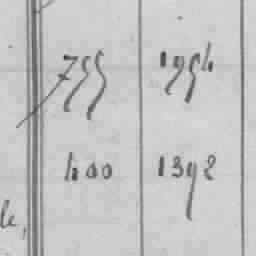 755 1954
400 1392
le,